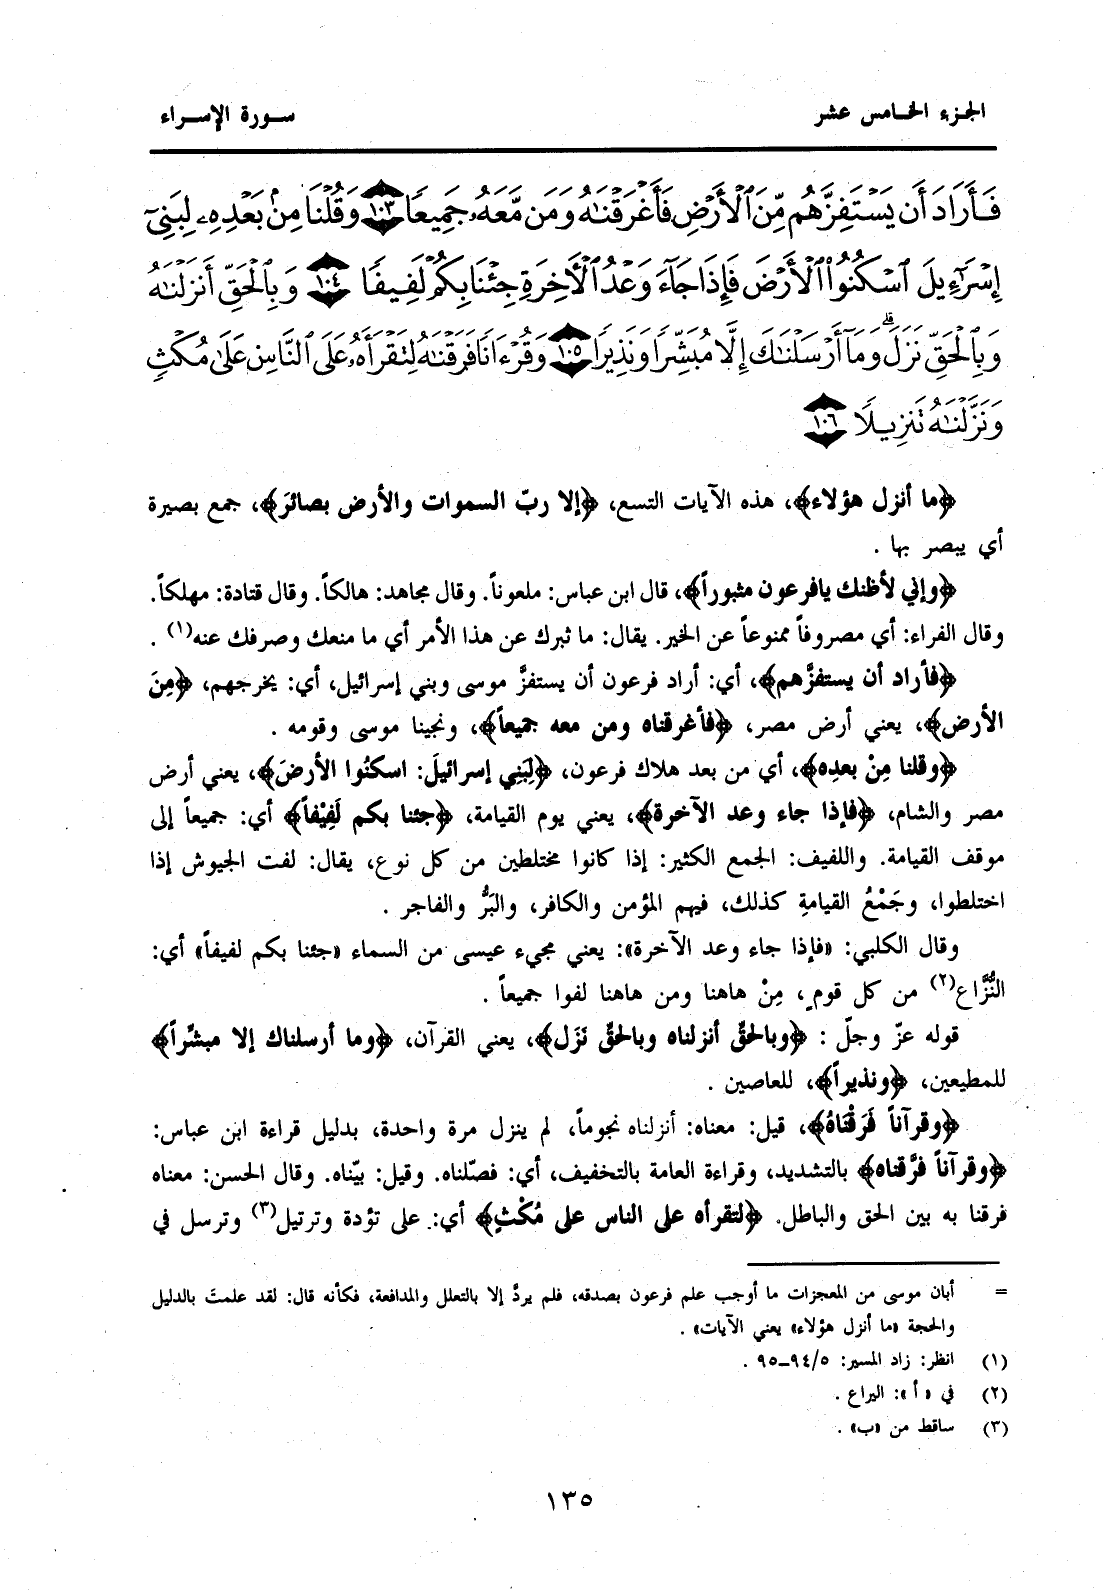 الجزء الخامس عشر
سورة الإسراء
فَأَرَادَ أَن يَسْتَفِزَّهُم مِّنَ ٱلْأَرْضِ فَأَغْرَقْنَٰهُ وَمَن مَّعَهُۥ جَمِيعًا ١٠٣ وَقُلْنَا مِنۢ بَعْدِهِۦ لِبَنِىٓ
إِسْرَٰٓءِيلَ ٱسْكُنُوا۟ ٱلْأَرْضَ فَإِذَا جَآءَ وَعْدُ ٱلْأَخِرَةِ جِئْنَا بِكُمْ لَفِيفًا ١٠٤ وَبِٱلْحَقِّ أَنزَلْنَٰهُ
وَبِٱلْحَقِّ نَزَلَ ۗ وَمَآ أَرْسَلْنَٰكَ إِلَّا مُبَشِّرًا وَنَذِيرًا ١٠٥ وَقُرْءَانًا فَرَقْنَٰهُ لِتَقْرَأَهُۥ عَلَى ٱلنَّاسِ عَلَىٰ مُكْثٍ
وَنَزَّلْنَٰهُ تَنزِيلًا ١٠٦
﴿ما أنزل هؤلاء﴾، هذه الآيات التسع، ﴿إلا ربّ السموات والأرض بصائرَ﴾، جمع بصيرة
أي يبصر بها .
﴿وإني لأظنك يافرعون مثبوراً﴾، قال ابن عباس: ملعوناً. وقال مجاهد: هالكاً. وقال قتادة: مهلكاً.
وقال الفراء: أي مصروفاً ممنوعاً عن الخير. يقال: ما ثبرك عن هذا الأمر أي ما منعك وصرفك عنه(١) .
﴿فأراد أن يستفزَّهم﴾، أي: أراد فرعون أن يستفزَّ موسى وبني إسرائيل، أي: يخرجهم، ﴿مِنَ
الأرض﴾، يعني أرض مصر، ﴿فأغرقناه ومن معه جميعاً﴾، ونجينا موسى وقومه .
﴿وقلنا مِنْ بعدِه﴾، أي من بعد هلاك فرعون، ﴿لِبَنِي إسرائيلَ: اسكنُوا الأرضَ﴾، يعني أرض
مصر والشام، ﴿فإذا جاء وعد الآخرة﴾، يعني يوم القيامة، ﴿جئنا بكم لَفِيْفاً﴾ أي: جميعاً إلى
موقف القيامة. واللفيف: الجمع الكثير: إذا كانوا مختلطين من كل نوع، يقال: لفت الجيوش إذا
اختلطوا، وجَمْعُ القيامةِ كذلك، فيهم المؤمن والكافر، والبَرُّ والفاجر .
وقال الكلبي: «فإذا جاء وعد الآخرة»: يعني مجيء عيسى من السماء «جئنا بكم لفيفاً» أي:
النُّزَّاع(٢) من كل قومٍ، مِنْ هاهنا ومن هاهنا لفوا جميعاً .
قوله عزّ وجلّ : ﴿وبالحقِّ أنزلناه وبالحقِّ نَزَل﴾، يعني القرآن، ﴿وما أرسلناك إلا مبشِّراً﴾
للمطيعين، ﴿ونذيراً﴾، للعاصين .
﴿وقرآناً فَرَقْنَاهُ﴾، قيل: معناه: أنزلناه نجوماً، لم ينزل مرة واحدة، بدليل قراءة ابن عباس:
﴿وقرآناً فرَّقناه﴾ بالتشديد، وقراءة العامة بالتخفيف، أي: فصّلناه. وقيل: بيّناه. وقال الحسن: معناه
فرقنا به بين الحق والباطل. ﴿لتقرأه على الناس على مُكْثٍ﴾ أي: على تؤدة وترتيل(٣) وترسل في
= أبان موسى من المعجزات ما أوجب علم فرعون بصدقه، فلم يردَّ إلا بالتعلل والمدافعة، فكأنه قال: لقد علمتَ بالدليل
والحجة «ما أنزل هؤلاء» يعني الآيات» .
(١) انظر: زاد المسير: ٩٤/٥-٩٥ .
(٢) في «أ»: اليراع .
(٣) ساقط من «ب» .
١٣٥